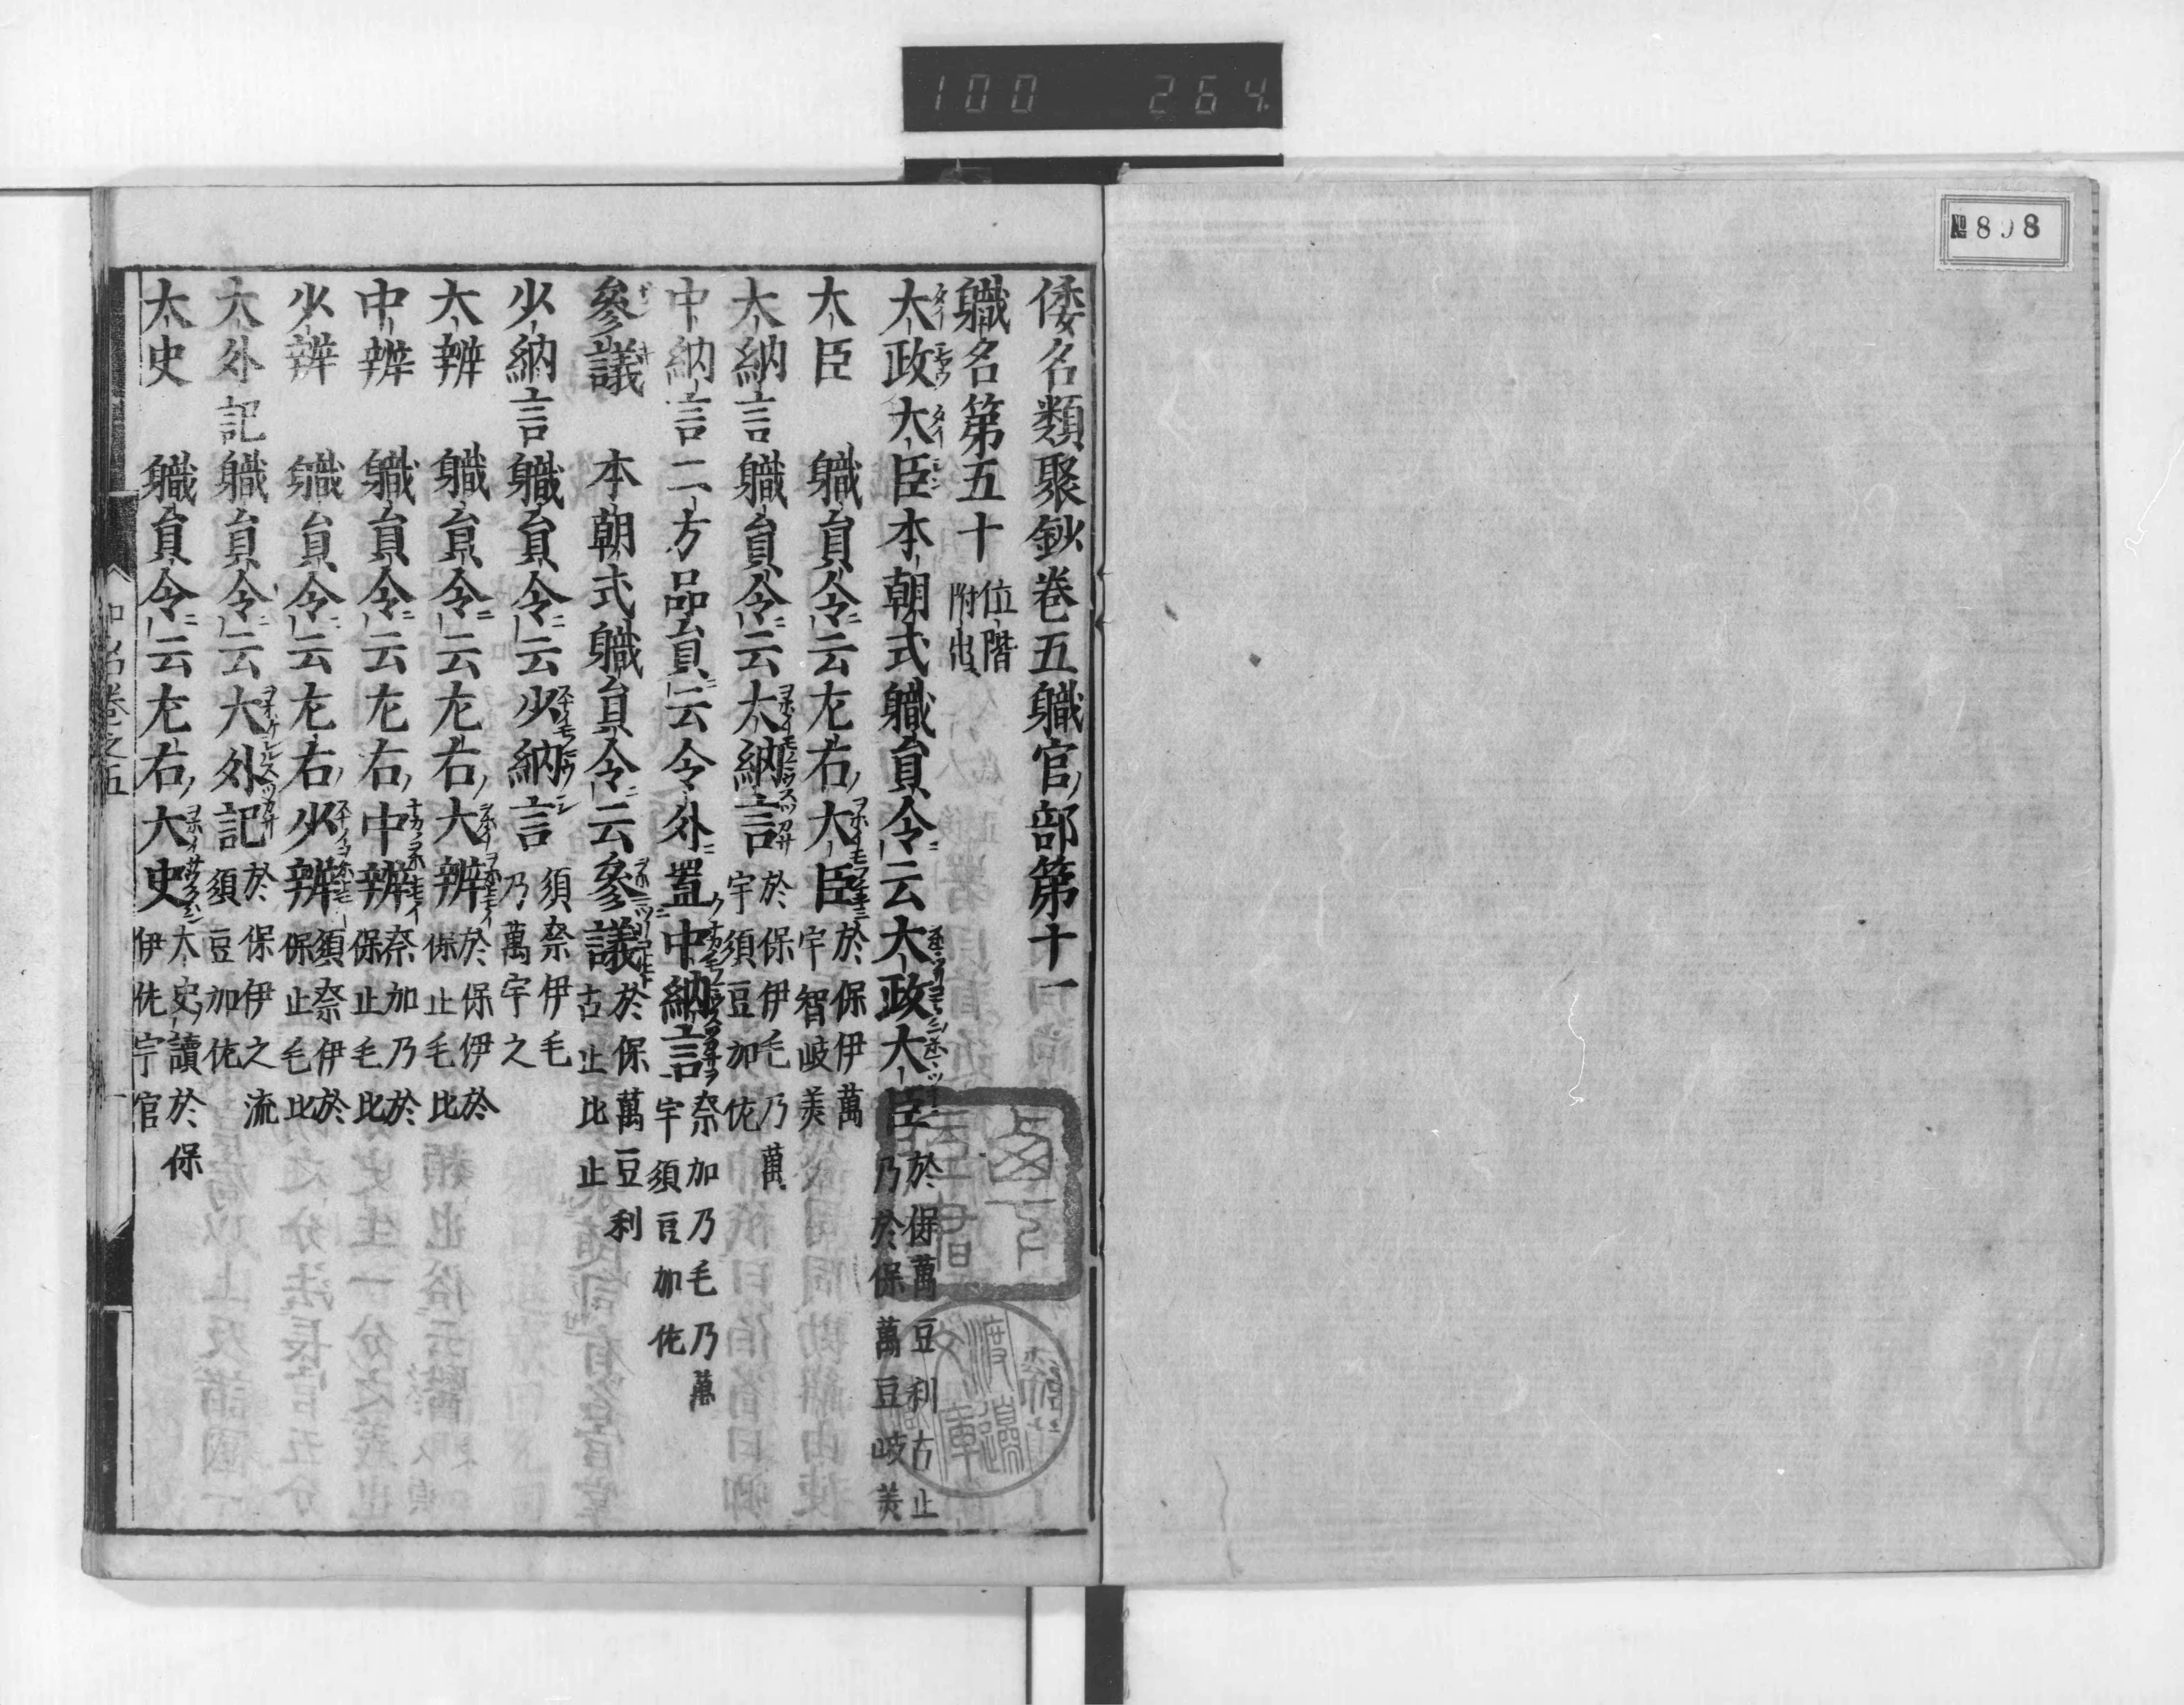 100 264
№898
倭名類聚鈔卷五職官部第十一
職名第五十 位階附出
大政大臣本朝式職員令云大政大臣 於保萬豆利古止乃於保萬豆岐美
大臣 職員令云左右大臣 於保伊萬宇智岐美
大納言職員令云大納言 於保伊毛乃萬宇須豆加佐
中納言二方品員云令外置中納言 奈加乃毛乃萬宇須豆加佐
參議 本朝式職員令云參議 於保萬豆利古止比止
少納言職員令云少納言 須奈伊毛乃萬宇之
大辨 職員令云左右大辨 於保伊於保止毛比
中辨 職員令云左右中辨 奈加乃於保止毛比
少辨 職員令云左右少辨 須奈伊於保止毛比
大外記職員令云大外記 於保伊之流須豆加佐
大史 職員令云左右大史 大史讀於保伊佐宇官
和名卷之五 一
渡邊
文庫